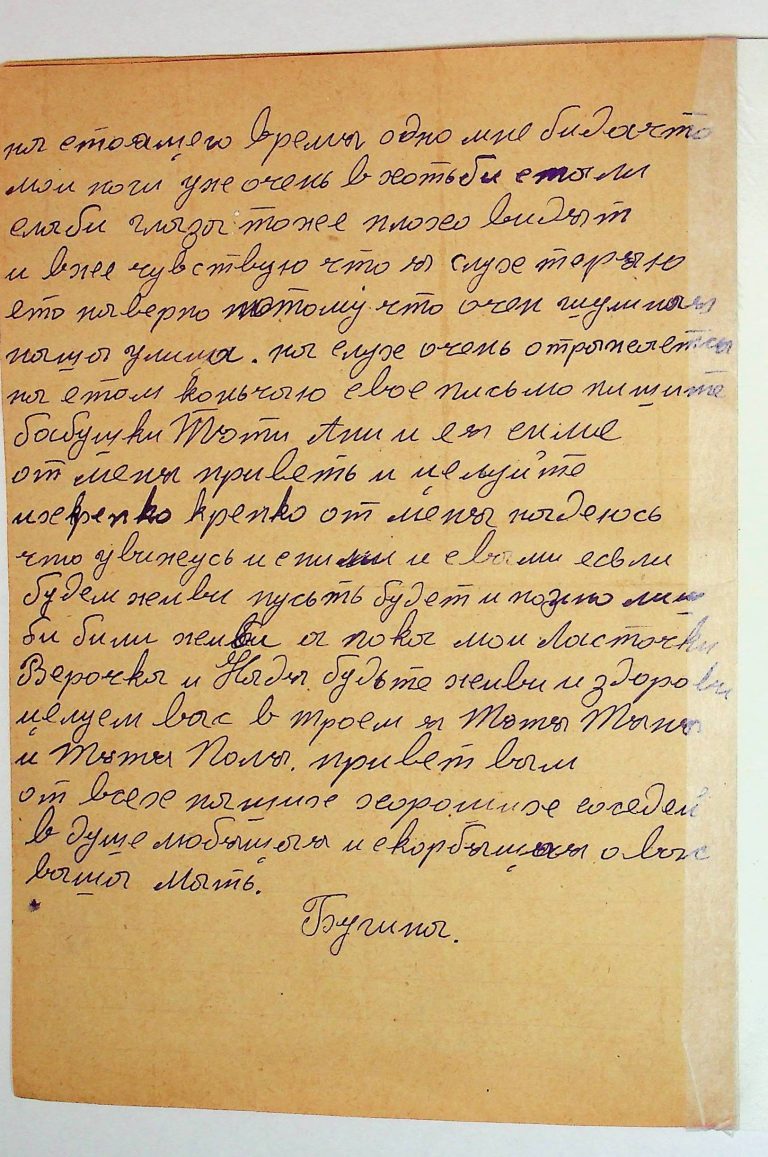 на стоамего время одно мне бида что
мои ноги уже очень в хотьби стали
слаби глазы тоже плохо видят
и вже чувствую что я слух теряю
ето наверно потому что очен шумная
наша улица. на слух очень отражается
на етом коньчаю свое письмо пишите
бабушки Тёти Ани и ея симе
от меня приветь и целуйте
их крепко крепко от меня надеюсь
что увижусь и сними и свами если
будем живи пусьть будет и позно лиш
би били живи а пока мои Ласточки
Верочка и Надя будьте живи и здорови
целуем вас в троем я Тётя Таня
и Тётя Поля. привет вам
от всех наших хороших соседей
в душе любящая и скорбящая о вас
ваша Мать.
Бугина.